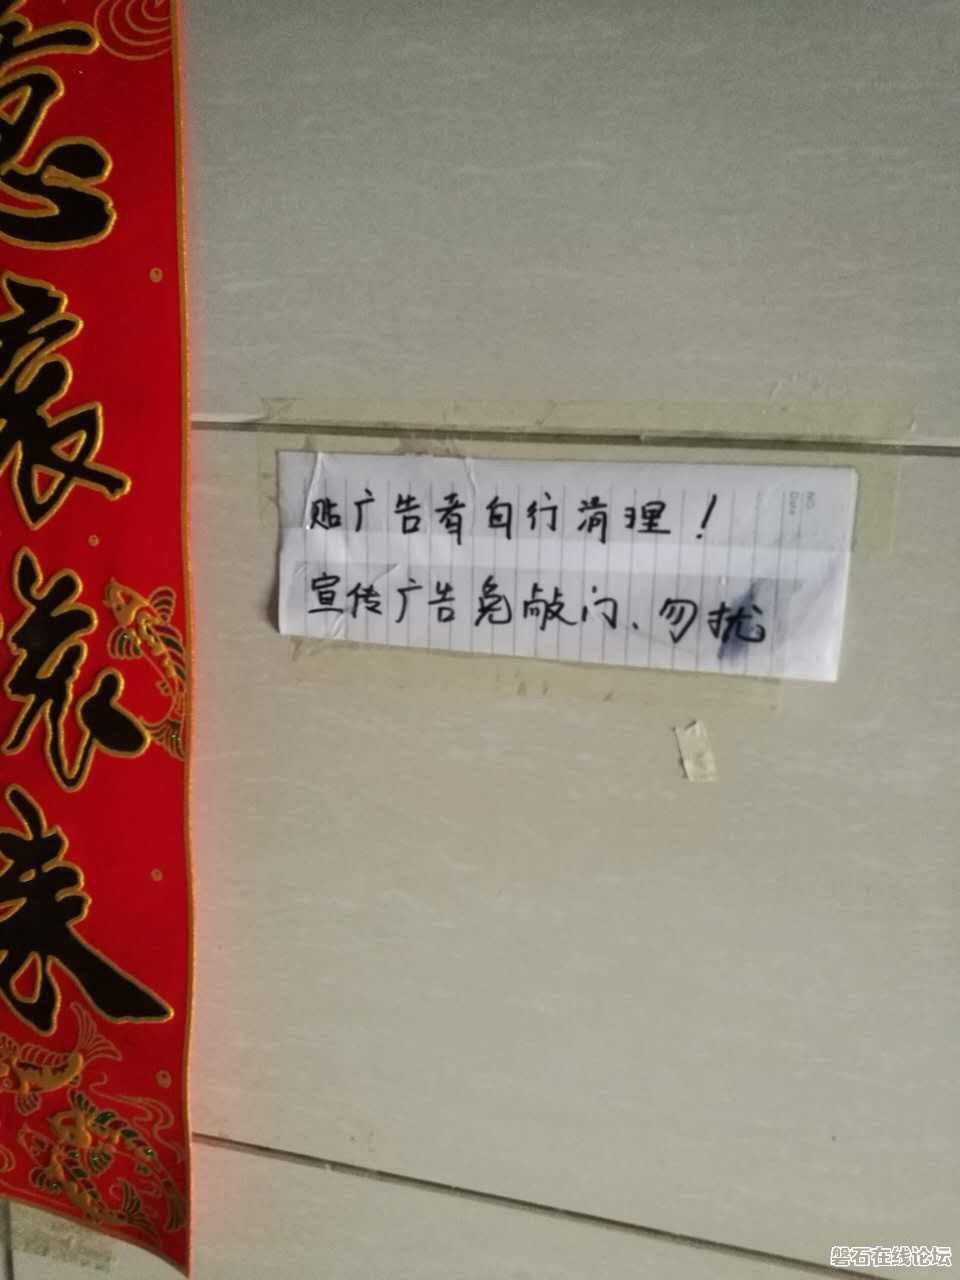 意
滚
滚
来
贴广告者自行清理！
宣传广告免敲门、勿扰
NO.
Date
磐石在线论坛